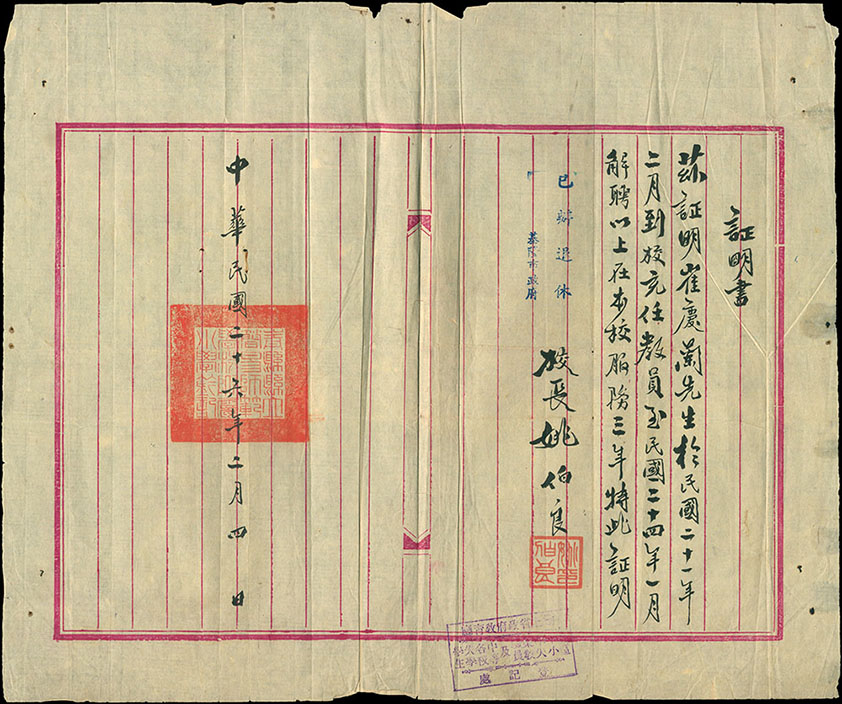 証明書
茲証明崔慶蘭先生於民國二十一年
二月到校充任教員至民國二十四年一月
解聘以上在本校服務三年特此証明
已辦退休
基隆市政府
校長姚伯良
中華民國二十六年二月四日